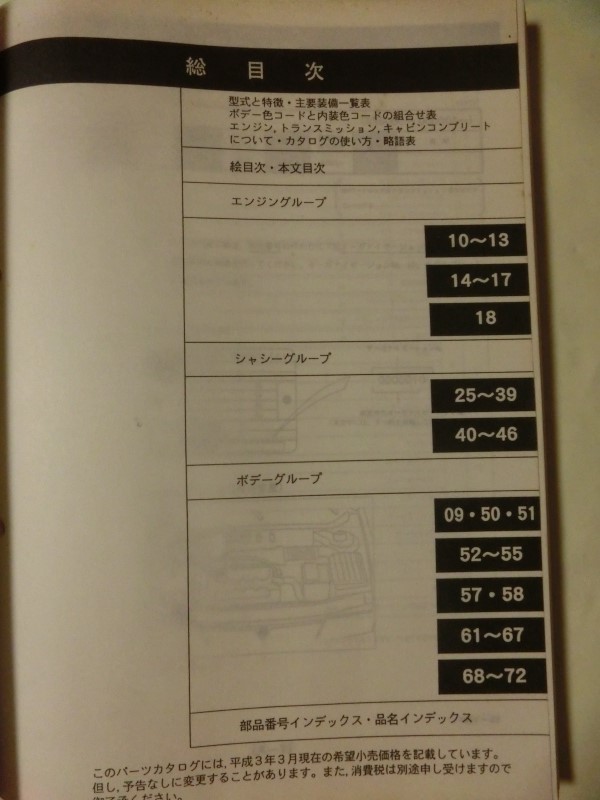 総目次
型式と特徴・主要装備一覧表
ボデー色コードと内装色コードの組合せ表
エンジン,トランスミッション,キャビンコンプリート
について・カタログの使い方・略語表
絵目次・本文目次
エンジングループ
10〜13
14〜17
18
シャシーグループ
25〜39
40〜46
ボデーグループ
09・50・51
52〜55
57・58
61〜67
68〜72
部品番号インデックス・品名インデックス
このパーツカタログには,平成3年3月現在の希望小売価格を記載しています。
但し,予告なしに変更することがあります。また,消費税は別途申し受けますので
御了承ください。